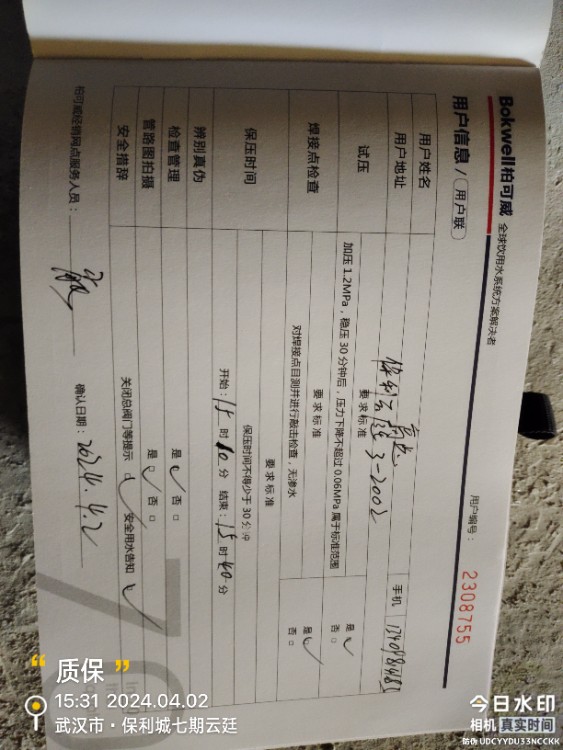 Bokwell柏可威 全球饮用水系统方案解决者
用户信息 / 用户联
用户编号: 2308755
用户姓名
手机
用户地址 保利云廷 3-2002
试压
要求标准
加压 1.2MPa，稳压 30 分钟后，压力下降不超过 0.06MPa 属于标准范围
是 否
焊接点检查
要求标准
对焊接点目测并进行敲击检查，无渗水
是 否
保压时间
要求标准
保压时间不得少于 30 分钟
开始：15 时 10 分 结束：15 时 40 分
辨别真伪
检查管理
是 否
管路图拍摄
是 否
安全措辞
关闭总阀门等提示 安全用水告知
柏可威经销网点服务人员：
确认日期：2024.4.2
“ 质保 ”
15:31 2024.04.02
武汉市·保利城七期云廷
今日水印
相机 真实时间
防伪 UDCYYDU33NCCKK